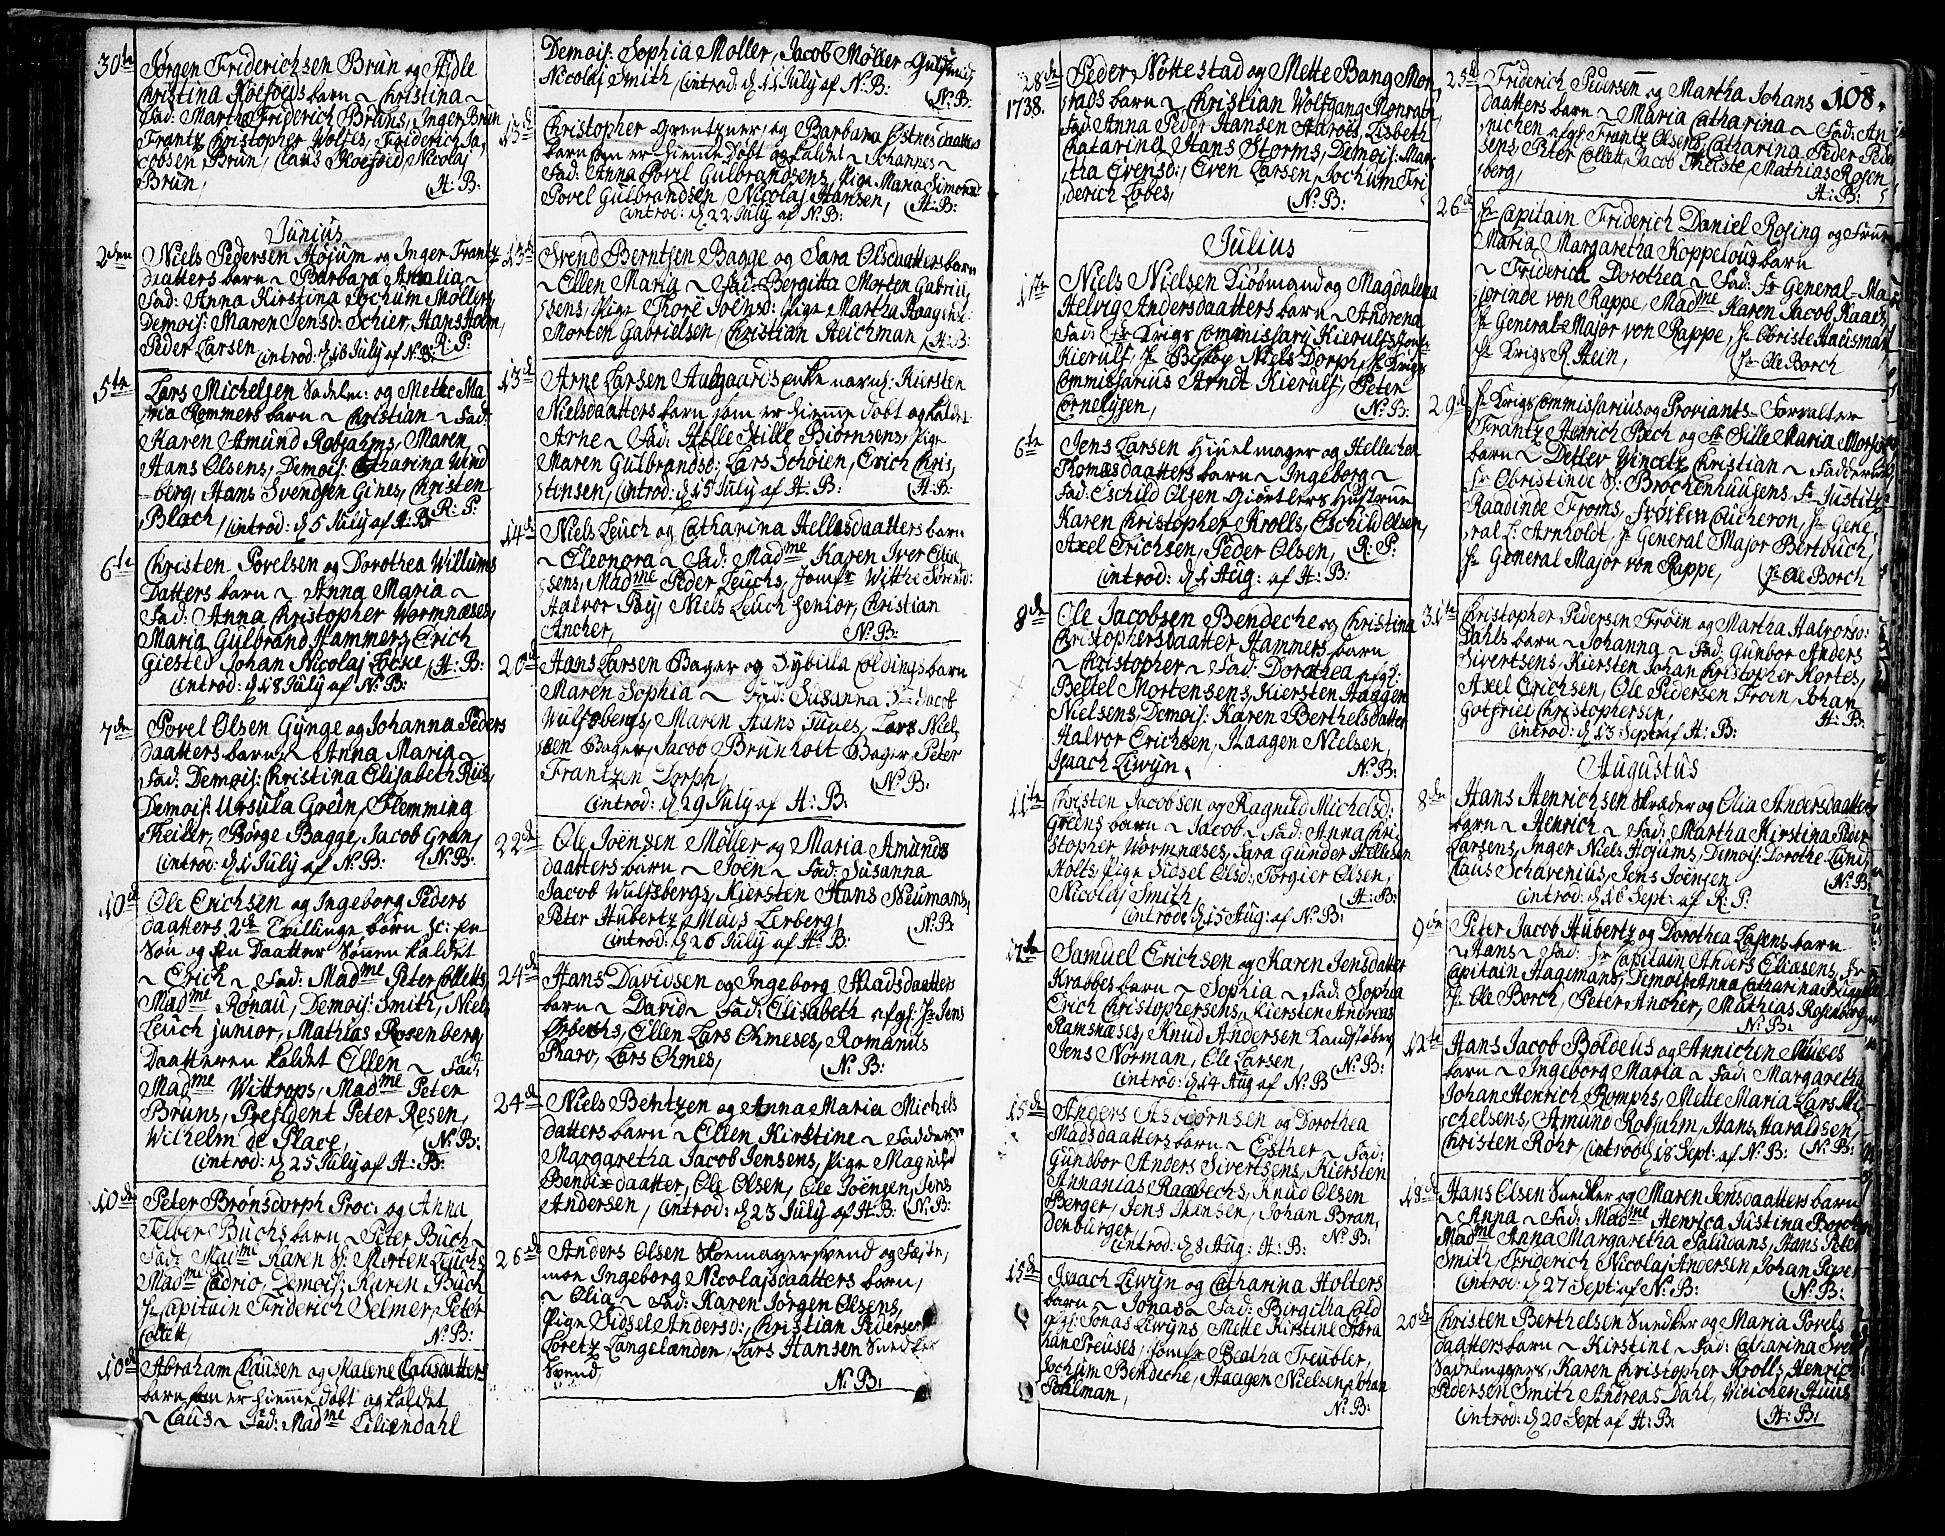 30te
Jørgen Friderichsen Brun og Sidle
Christina Koefoeds barn ~ Christina ~
Fad: Martha Friderich Bruns, Inger Brun
Frantz Christopher Woltes, Friderich Ja,
cobsen Brun, Claus Koefoed, Nicolaj
Brun, H: B:
Junius
2den
Niels Pedersen Højum og Inger Frantz
daatters barn ~ Barbara Amalia ~
Fad: Anna Kirstina Jochum Møllers
Demois: Maren Jensd: Schier, Hans Holm,
Peder Larsen
introd: d 16 July af N: B: R: P:
5te
Lars Michelsen Sadelm: og Mette Ma,
ria Rommers barn ~ Christian ~ Fad:
Karen Amund Robsahms, Maren
Hans Olsens, Demois: Catharina Wind
berg, Hans Svendsen Gines, Christen
Blach, introd: d 5 July af H: B: R: P:
6te
Christen Povelsen og Dorothea Willums
Datters barn ~ Anna Maria ~
Fad: Anna Christopher Wormnæses,
Maria Gulbrand Hammers, Erich
Giested, Johan Nicolaj Focke H: B:
introd: d 18 July af N: B:
7de
Povel Olsen Gynge og Johanna Peders
daatters barn ~ Anna Maria ~
Fad: Demois: Christina Elisabeth Riis,
Demois: Ursula Grein, Flemming
Reiler, Børge Bagge, Jacob Gran,
introd: d 1 July af N: B: N: B:
10de
Ole Erichsen og Ingeborg Peders
daatters 2de Tvillinge børn sc: en
Søn og en Daatter Sønnen kaldet
~ Erich ~ Fad: Madme Peter Colletts,
Madme Ronau, Demois: Smith, Niels
Leuch junior, Mathias Rosenberg,
Daatteren kaldet Ellen ~ Fad:
Madme Wittrops, Madme Peter
Bruns, President Peter Resen,
Wilhelm de Place, N: B:
introd: d 25 July af H: B:
10de
Peter Brønsdorph Proc: og Anna
Felber Buchs barn ~ Peter Buch ~
Fad: Madme Karen S: Morten Leuchs,
Madme Cadrio, Demois: Karen Buch
Hr Capitain Friderich Selmer, Peter
Collett, N: B:
10de
Abraham Clausen og Malene Clausdatters
barn som er hiemme døbt og kaldet
~ Claus ~ Fad: Madme Liliendahl
Demois: Sophia Møller, Jacob Møller Gulsmed,
Nicolaj Smith, introd: d 11 July af N: B:
N: B:
13de
Christopher Grentzner, og Barbara Ostnesdaatters
barn som er hiemme døbt og kaldet ~ Johannes ~
Fad: Anna Povil Gulbrandsens, Pige Maria Simensd:
Povel Gulbrandsen, Nicolaj Hansen, H: B:
introd: d 22 July af N: B:
13de
Svend Berntsen Bagge og Sara Olsdaatters barn
~ Ellen Maria ~ Fad: Bergitta Morten Gabriel,
sens, Pige Thore Joensd: Pige Martha Haagensd:
Morten Gabrielsen, Christian Heichman, H: B:
13de
Arne Larsen Aulgaards enke navnl: Kiersten
Nielsdaatters barn som er hiemme døbt og kaldet
Arne ~ Fad: Helle Stille Biørnsens, Pige
Maren Gulbrandsd: Lars Schøien, Erich Chris,
stensen, introd: d 15 July af H: B: H: B:
14de
Niels Leuch og Catharina Hellesdaatters barn
~ Eleonora ~ Fad: Madme Karen Iver Elie,
sens, Madme Peder Leuchs, Jomfr Witthe Sørensd:
Halvor Pay, Niels Leuch senior, Christian
Ancher, N: B:
20de
Hans Larsen Bager og Sybilla Coldings barn
Maren Sophia ~ Fad: Susanna Jacob
Wulfsbergs, Maren Hans Tanes, Lars Niel,
sen Bager, Jacob Brunholt Bager, Peter
Frantzen Dorph, N: B:
introd: d 29 July af H: B:
22de
Ole Joensen Møller og Maria Amunds
daatters barn ~ Joen ~ Fad: Susanna
Jacob Wulfsbergs, Kiersten Hans Neumans,
Peter Hubertz, Mads Lerberg, N: B:
introd: d 26 July af H: B:
24de
Hans Davidsen og Ingeborg Madsdaatters
barn ~ David ~ Fad: Elisabeth afgl: Hr Jens
Ørbechs, Ellen Lars Ochmeses, Romanus
Pharo, Lars Ochmes, N: B:
24de
Niels Bentzen og Anna Maria Michels
datters barn ~ Ellen Kirstine ~ Faddere
Margaretha Jacob Jensens, Pige Magnild
Bendixdaatter, Ole Olsen, Ole Joensen, Jens
Andersen, introd: d 23 July af H: B: N: B:
26de
Anders Olsen Skoemagersvend og Fæste,
moe Ingeborg Nicolajsdaatters barn,
~ Olia ~ Fad: Karen Jørgen Olsens,
Pige Sidsel Andersd:, Christian Pedersen
Loretz Langelanden, Lars Hansen Snedker
Svend, N: B:
28de
1738.
Peder Nottestad og Mette Bang Mon,
rads barn ~ Christian Wolfgang Monrath,
Fad: Anna Peder Hansen Aarots, Lisbeth
Chatarine Hans Storms, Demois: Mar,
tha Evensd:, Even Larsen, Jochum Fri
derich Tobes, N: B:
Julius
1te
Niels Nielsen Kiøbmand og Magdalena
Helvig Andersdaatters barn ~ Andrena
Fad: Fr Krigs Commissary Kierulfs, Jomfr
Kierulf, Hr Biskop Niels Dorph, Hr Krigs
Commissarius Arndt Kierulf, Peter
Cornelysen, N: B:
6te
Jens Larsen Hiuelmager og Hellechen
Thomæsdaatters barn ~ Ingeborg ~
Fad: Eschild Olsen Giørtlers Hustrue
Karen Christopher Krolls, Eschild Olsen,
Axel Erichsen, Peder Olsen, R: P:
introd: d 1 Aug: af H: B:
8de
Ole Jacobsen Bendeche og Christina
Christophersdaatter Hammers barn
~ Christopher ~ Fad: Dorothea afgl:
Bertel Mortensens, Kiersten Haagen
Nielsens, Demois: Karen Berthelsdatter
Halvor Erichsen, Haagen Nielsen,
Isaach Liwyn. N: B:
11te
Christen Jacobsen og Ragnild Michelsd:
Greens barn ~ Jacob ~ Fad: Anna Chri,
stopher Wormnæses, Sara Gunder Hellesen
Holts, Pige Sidsel Olsd: Torgier Olsen,
Nicolaj Smith, H: B:
introd: d 15 Aug: af N: B:
17de
Samuel Erichsen og Karen Jensdatter
Krabbes barn ~ Sophia ~ Fad: Sophia
Erich Christophersens, Kiersten Andreas
Ramsnæses, Knud Andersen Kandstøber,
Jens Norman, Ole Larsen, N: B:
introd: d 14 Aug af N: B
15de
Anders Asbiørnsen og Dorothea
Madsdaatters barn ~ Esther ~ Fad:
Gundbor Anders Sivertsens, Kiersten
Annanias Raabechs, Knud Olsen
Berger, Jens Jhensen, Johan Bran,
denburger, N: B:
introd: d 8 Aug: H: B:
15de
Isaach Liwyn og Catharina Holters
barn ~ Jonas ~ Fad: Bergitha Cold
afgl: Jonas Liwyns, Mette Kirstine Abra
ham Preuses, Jomfr Beatha Treubler,
Jochum Bendeche, Haagen Nielsen, Johan
Pohlman, N: B:
108.
25de
Friderich Pedersen og Martha Johans
daatters barn ~ Maria Catharina ~ Fad: An,
nichen afgl: Frantz Olsens, Catharina Peder Peder
sens, Peter Collett, Jacob Theiste, Mathias Rosen,
berg, H: B:
26de
Hr Capitain Friderich Daniel Rosing og Frue
Maria Margaretha Koppelous barn
~ Friderica Dorothea ~ Fad: Fr General-Ma,
jorinde von Rappe, Madme Karen Jacob Raaes,
Hr General-Major von Rappe, Hr Obriste Hausman,
Hr Krigs R. Stein, Hr Ole Borch
29de
Hr Krigs Commissarius og Proviants-Forvalter
Frantz Henrich Bech og Fr Sille Maria Morses
barn ~ Detlev Vincetz Christian ~ Faddere
Fr Obristinde S: Brochenhuusens, Fr Justitz-
Raadinde Froms, Frøiken Coucheron, Hr Gene,
ral L: Arnholdt, Hr General Major Bertouch,
Hr General Major von Rappe, Hr Ole Borch
31te
Christopher Pedersen Frøen og Martha Halvorsd:
Dahls barn ~ Johanna ~ Fad: Gunbor Anders
Sivertsens, Kiersten Johan Christopher Hortes,
Axel Erichsen, Ole Pedersen Froen, Johan
Gotfried Christophersen, H: B:
introd: d 13 Sept af H: B:
Augustus
8de
Hans Henrichsen Skræder og Olia Andersdaatters
barn ~ Henrich ~ Fad: Martha Kirstina Peder
Larsens, Inger Niels Højums, Demois: Dorothe Lund
Claus Schavenius, Jens Joensen N: B:
introd: d 16 Sept: af R: P:
9de
Peter Jacob Hubertz og Dorothea Lassens barn
~ Hans ~ Fad: Fr Capitain Anders Eliasens, Fr
Capitain Hagemans, Demois: Anna Catharina
Hr Ole Borch, Peter Ancher, Mathias Rosenberg
N: B:
12te
Hans Jacob Boldeus og Annichen Muses
barn ~ Ingeborg Maria ~ Fad: Margaretha
Johan Henrich Romphs, Mette Maria Lars Mi,
chelsens, Amund Robsahm, Hans Haraldsen,
Christen Rohr, introd: d 18 Sept: af N: B: N: B:
18de
Hans Olsen Snedker og Maren Jensdaatters barn
~ Anna ~ Fad: Madme Henrica Justina Borchs
Madme Anna Margaretha Paludans, Hans Peter
Smith, Friderich Nicolaj Andersen, Johan Pope
introd: d 27 Sept: af N: B: N: B:
20de
Christen Berthelsen Snedker og Maria Povels
daatters barn ~ Kirstine ~ Fad: Catharina Sven
Sadelmagers, Karen Christopher Krolls, Henrich
Pedersen Smith, Andreas Dahl, Weichen Huus
introd: d 20 Sept af H: B: H: B: